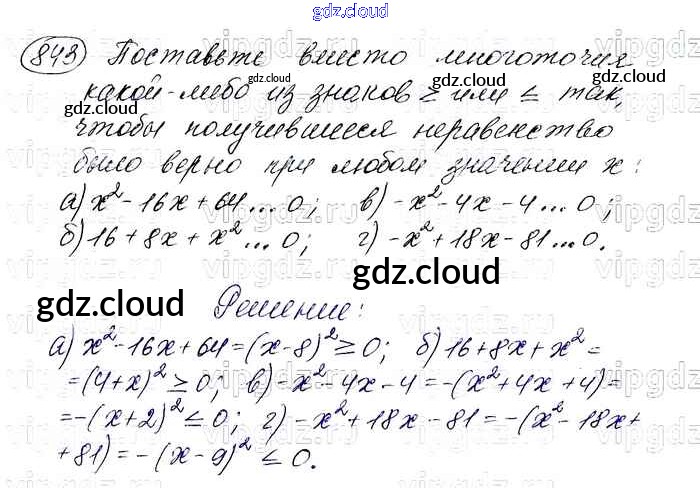 gdz.cloud
843 Поставьте вместо многоточия
gdz.cloud
какой-либо из знаков ≥ или ≤ так,
gdz.cloud gdz.cloud
чтобы получившиеся неравенство
было верно при любом значении x:
а) x² - 16x + 64 ... 0; в) -x² - 4x - 4 ... 0;
б) 16 + 8x + x² ... 0; г) -x² + 18x - 81 ... 0.
gdz.cloud
gdz.cloud Решение:
а) x² - 16x + 64 = (x - 8)² ≥ 0; б) 16 + 8x + x² =
= (4 + x)² ≥ 0; в) -x² - 4x - 4 = -(x² + 4x + 4) =
= -(x + 2)² ≤ 0; г) -x² + 18x - 81 = -(x² - 18x +
+ 81) = -(x - 9)² ≤ 0.